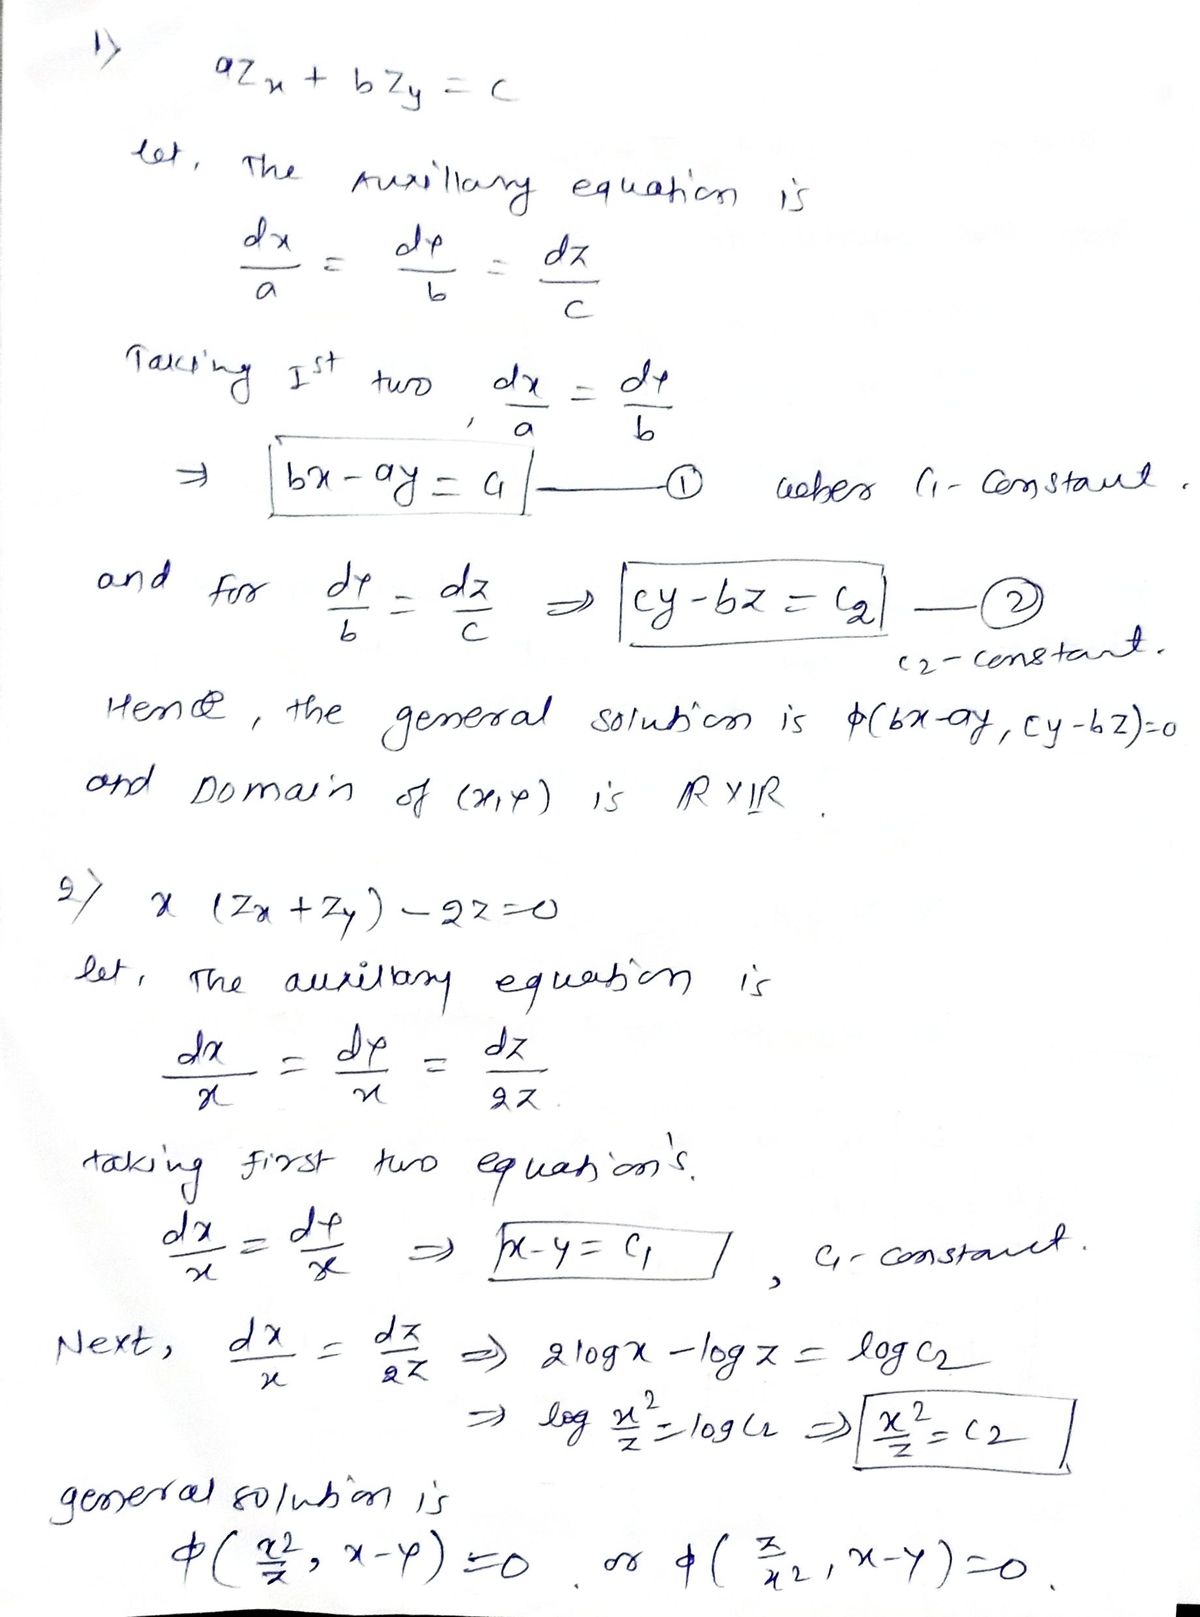 1)
aZx + bZy = c
let, The Auxillary equation is
dx/a = dy/b = dz/c
Taking Ist two, dx/a = dy/b
⇒ bx - ay = c1 —— ① where c1 - constant.
and for dy/b = dz/c ⇒ cy - bz = c2 — ②
c2 - constant.
Hence, the general solution is ϕ(bx-ay, cy-bz)=0
and Domain of (x,y) is ℝ×ℝ.
2) x (Zx + Zy) - 2z = 0
let, The auxillary equation is
dx/x = dy/x = dz/2z.
taking first two equation's.
dx/x = dy/x ⇒ x-y = c1, c1 - constant.
Next, dx/x = dz/2z ⇒ 2logx - logz = logc2
⇒ log x²/z = logc2 ⇒ x²/z = c2
general solution is
ϕ(x²/z, x-y) = 0. or ϕ(z/x², x-y) = 0.